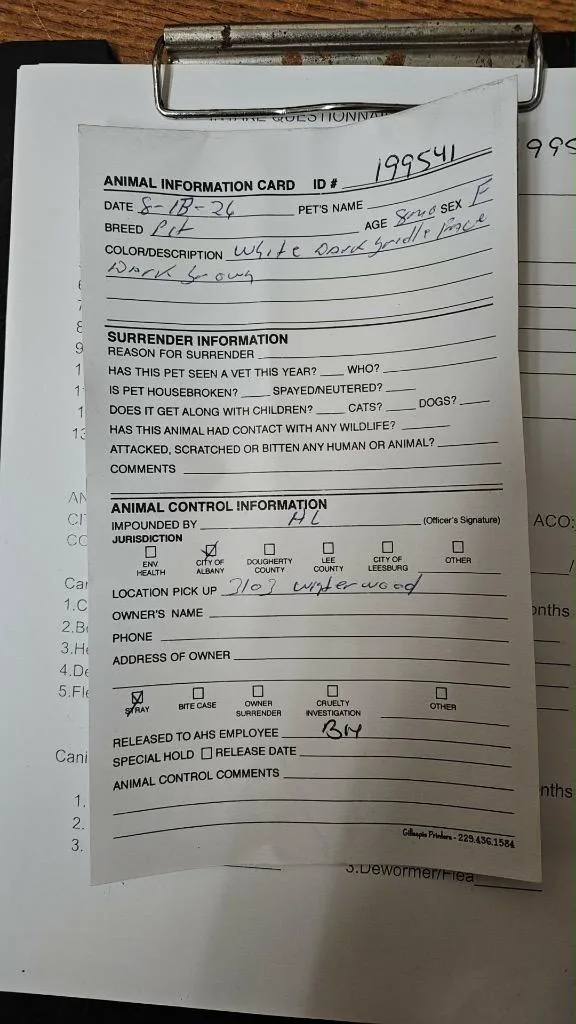 INTAKE QUESTIONNA
995
ANIMAL INFORMATION CARD ID # 199541
DATE 8-18-26 PET'S NAME
BREED Pit AGE 8mo SEX F
COLOR/DESCRIPTION White Dark bridle face
Dark brown
SURRENDER INFORMATION
REASON FOR SURRENDER
HAS THIS PET SEEN A VET THIS YEAR? WHO?
IS PET HOUSEBROKEN? SPAYED/NEUTERED?
DOES IT GET ALONG WITH CHILDREN? CATS? DOGS?
HAS THIS ANIMAL HAD CONTACT WITH ANY WILDLIFE?
ATTACKED, SCRATCHED OR BITTEN ANY HUMAN OR ANIMAL?
COMMENTS
ANIMAL CONTROL INFORMATION
IMPOUNDED BY HL (Officer's Signature)
JURISDICTION
ENV. HEALTH
CITY OF ALBANY
DOUGHERTY COUNTY
LEE COUNTY
CITY OF LEESBURG
OTHER
LOCATION PICK UP 3103 Winterwood
OWNER'S NAME
PHONE
ADDRESS OF OWNER
STRAY
BITE CASE
OWNER SURRENDER
CRUELTY INVESTIGATION
OTHER
RELEASED TO AHS EMPLOYEE BM
SPECIAL HOLD RELEASE DATE
ANIMAL CONTROL COMMENTS
Gillespie Printers - 229.436.1584
8
9
1
1
1
13
AN
CI
CC
ACO:
Ca
1.C
2.B
3.He
4.De
5.Fle
onths
Cani
1.
2.
3.
nths
3.Dewormer/Flea